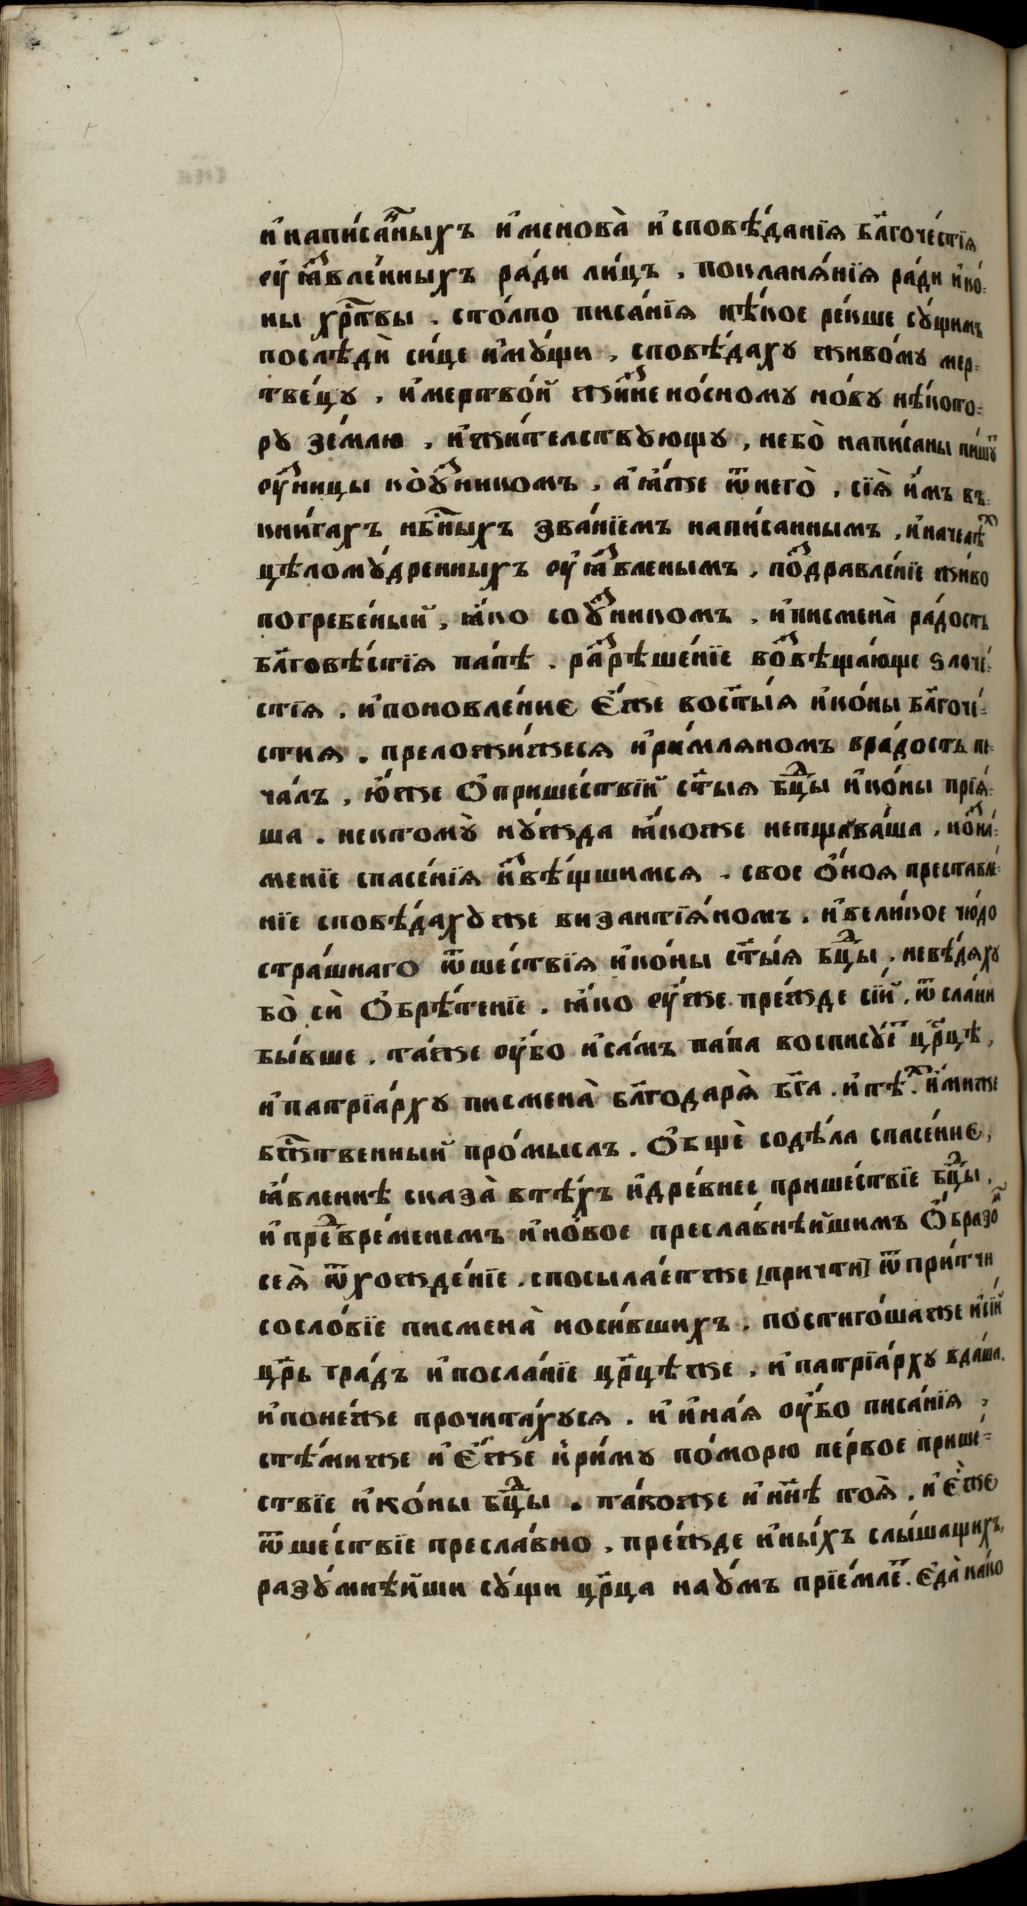 и҆написа́н̾ныхъ и҆менова̀ и҆сповѣ́данїѧ бл҃гоче́стїѧ
оу҆ꙗ҆́вле́нныхъ ра́ди ли́цъ , покланѧ́нїѧ ра́ди и҆ко́=
ны хрⷭ҇твы . сто́лпо писа́нїѧ нѣ́кое ре́кше сꙋ́щимъ
послѣ́ди си́це и҆мꙋ́щи , сповѣ́дахꙋ живо́мꙋ мер=
тве́цꙋ , и҆мертво́й жи́зⷩ҇е но́сномꙋ но́вꙋ нѣ́кото=
рꙋ зе́млю , и҆жи́телствꙋющꙋ , не бо̀ написаны пи́шꙋⷮ
оу҆́зⷩ҇ицы ко̀ оу҆́зникомъ , а҆ ꙗ҆́же ѿ него̀ , сїѧ̀ и҆́мъ въ
кни́гахъ нбⷭ҇ныхъ зва́нїемъ напи́саннымъ , и҆начелѣⷯ
цѣломꙋ́дренныхъ оу҆ꙗ҆́вленымъ , по́здравле́нїе живо
погребе́ный , ꙗ҆́ко со оу҆́зникомъ , и҆писмена̀ ра́дость
бл҃говѣ́стїѧ па́пѣ . ра́зрѣше́нїе во́звѣща́юще ѕлочи́=
стїѧ . и҆поновле́ние є҆́же во ст҃ы́ѧ и҆ко́ны бл҃гочи́=
стиѧ . преложи́жесѧ и҆ри́млѧномъ в ра́дость пе
ча́лъ , ю҆́же ѡ҆ прише́ствїй ст҃ы́ѧ бцⷣы и҆ко́ны прїѧ́=
ша . нектомꙋ̀ нꙋ́жда ꙗ҆́коже непщева́ша , но́ зна́=
мение спасе́нїѧ и҆звѣ́щшимсѧ . свое ѻ҆́ноѧ преставле́=
нїе сповѣ́дахꙋже византїѧ́номъ . и҆вели́кое чю́до
стра́шнаго ѿше́ствїѧ и҆ко́ны ст҃ы́ѧ бцⷣы , невѣ́дѧхꙋ
бо̀ си̇̀ ѡ҆брѣ́тенїе . ꙗ҆́ко оу҆́же пре́жде сїй , ѿсла́ни
бы́вше . та́же оу҆́бо и҆са́мъ па́па восписꙋ́еⷮ цр҃цѣ ,
и҆патрїа́рхꙋ писмена̀ бл҃годарѧ̀ бг҃а . и҆тѣⷯ . и҆́миже
бжⷭ҇твенный про́мыслъ . ѻ҆́бщѐ содѣ́ла спасе́ние ,
ꙗ҆́вленнѣ сказа̀ в тѣ́хъ и҆дре́внее прише́ствїе бцⷣы ,
и҆преⷣвре́менемъ и҆но́вое пресла́внѣйшимъ ѻ҆́бразоⷨ
сеѧ̀ ѿхожде́нїе . спосыла́етже [причти] ѿ при́тчи
сосло́вїе писмена̀ носи́вшихъ . пости́гошаже и҆сїй
цр҃ь гра́дъ и҆посла́нїе цр҃цѣже , и҆патрїа́рхꙋ вда́ша .
и҆поне́же прочита́хꙋсѧ . и҆ и҆на́ѧ оу҆́бо писа́нїѧ ,
стѣ́миже и҆ є҆́же к ри́мꙋ по́морю пе́рвое прише́=
ствїе и҆ко́ны бцⷣы . та́коже и҆ нн҃ѣ тоѧ̀ . и҆ є҆́же
ѿше́ствїе пресла́вно , пре́жде и҆ны́хъ слы́шащихъ ,
разꙋ́мнѣйши сꙋ́щи цр҃ца на оу҆́мъ прїе́млеⷮ . є҆да̀ ка́ко